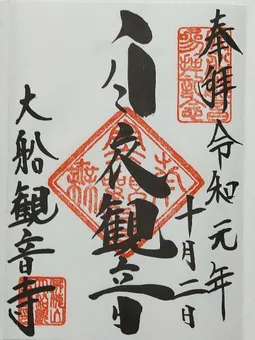 奉拝
令和元年
十月二日
白衣観音
大船観音寺